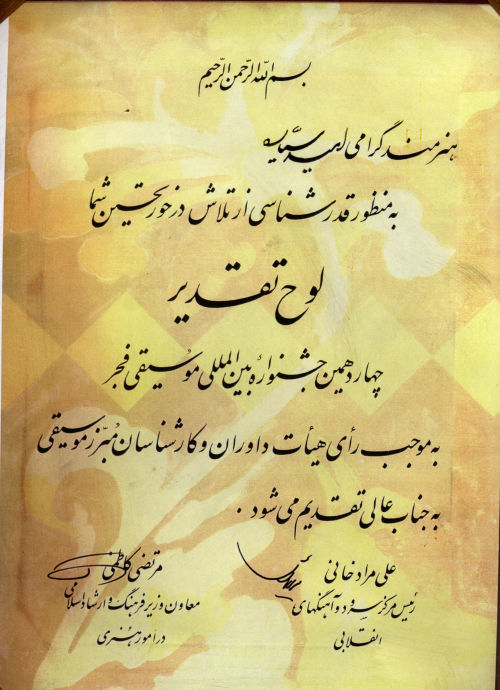 بسم الله الرحمن الرحیم
هنرمند گرامی امید سیاره
به منظور قدرشناسی از تلاش درخور تحسین شما
لوح تقدیر
چهاردهمین جشنواره بین المللی موسیقی فجر
به موجب رأی هیأت داوران و کارشناسان مبرّز موسیقی
به جناب عالی تقدیم می شود .
علی مرادخانی
رئیس مرکز سرود و آهنگهای
انقلابی
مرتضی کاظمی
معاون وزیر فرهنگ و ارشاد اسلامی
در امور هنری